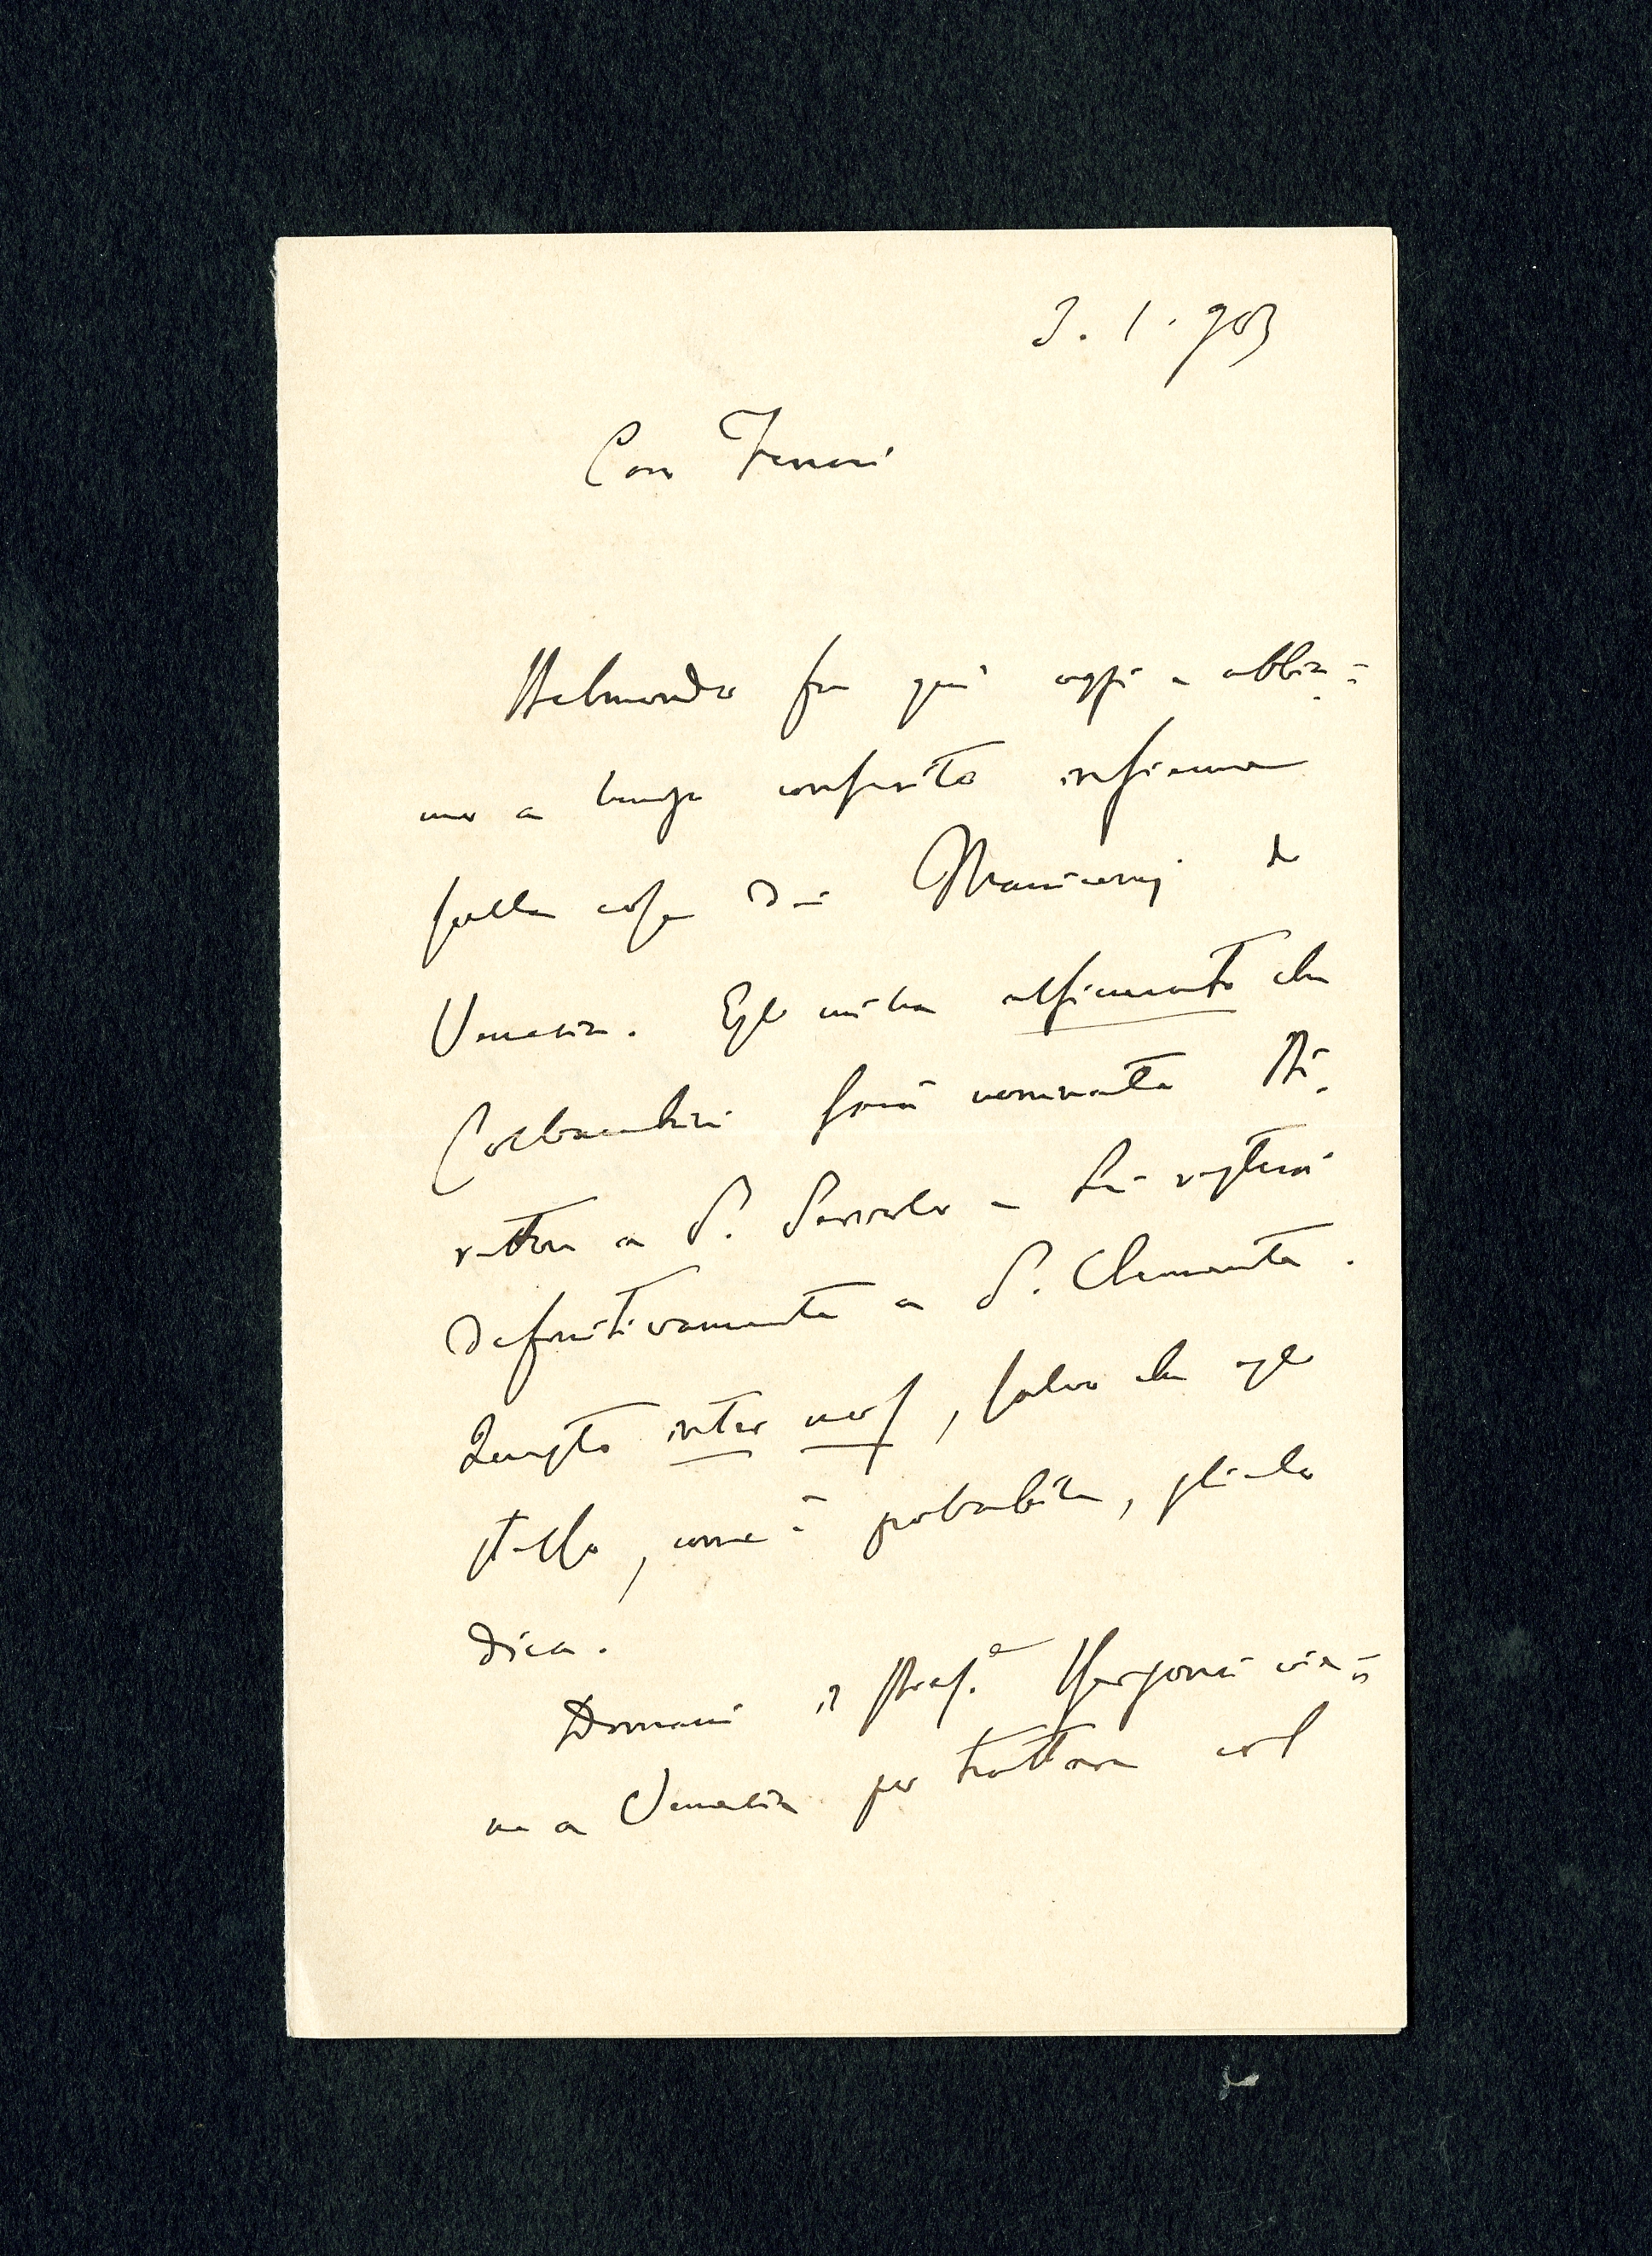 3. 1. 903
Caro Ferrari
Belmondo fu qui oggi e abbia=
mo a lungo conferito insieme
sulle cose dei Manicomj di
Venezia. Egli mi ha assicurato che
Colbachini sarà nominato Di=
rettore a S. Servolo e Lei resterà
definitivamente a S. Clemente.
Questo inter nos, salvo che egli
stesso, come è probabile, glielo
dica.
Domani il Prof.e Borgonci vie=
ne a Venezia per trattare col